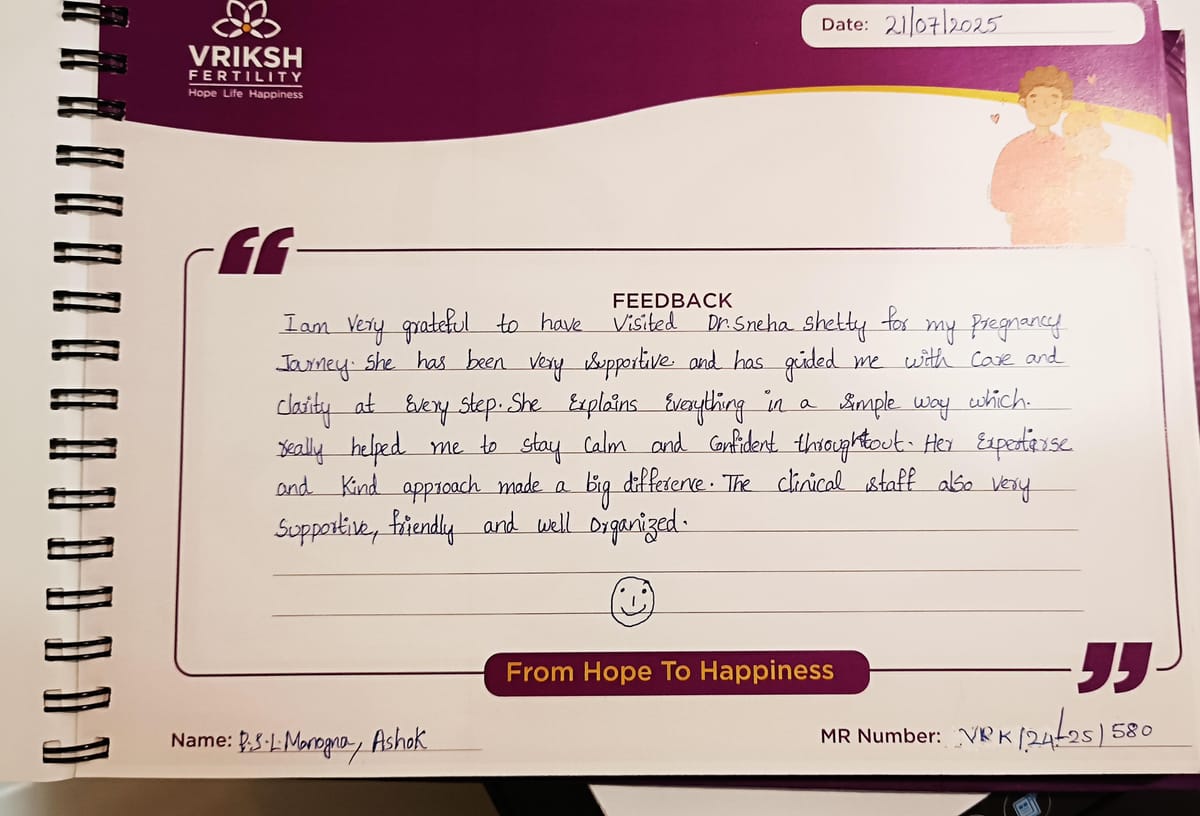 VRIKSH
FERTILITY
Hope Life Happiness
Date: 21/07/2025
FEEDBACK
I am Very grateful to have Visited Dr. Sneha Shetty for my Pregnancy
Journey. She has been Very Supportive. and has guided me with Care and
clarity at Every Step. She Explains Everything in a Simple way which.
really helped me to stay Calm and Confident throughtout. Her Expertise
and Kind approach made a big difference. The clinical staff also Very
Supportive, friendly and well Organized.
From Hope To Happiness
Name: P.S.L. Manogna, Ashok
MR Number: VRK/24-25/580